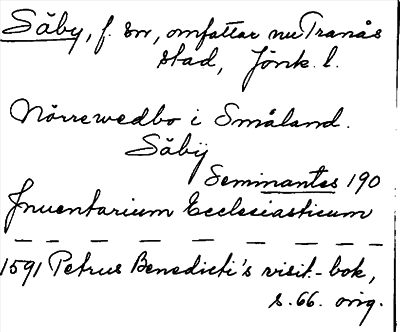 Säby, f. sn, omfattar nu Tranås
stad, Jönk. l.
Nörrewedbo i Småland.
Säbÿ
Seminantes 190
Inuentarium Ecclesiasticum
1591 Petrus Benedicti's visit.-bok,
s. 66. orig.